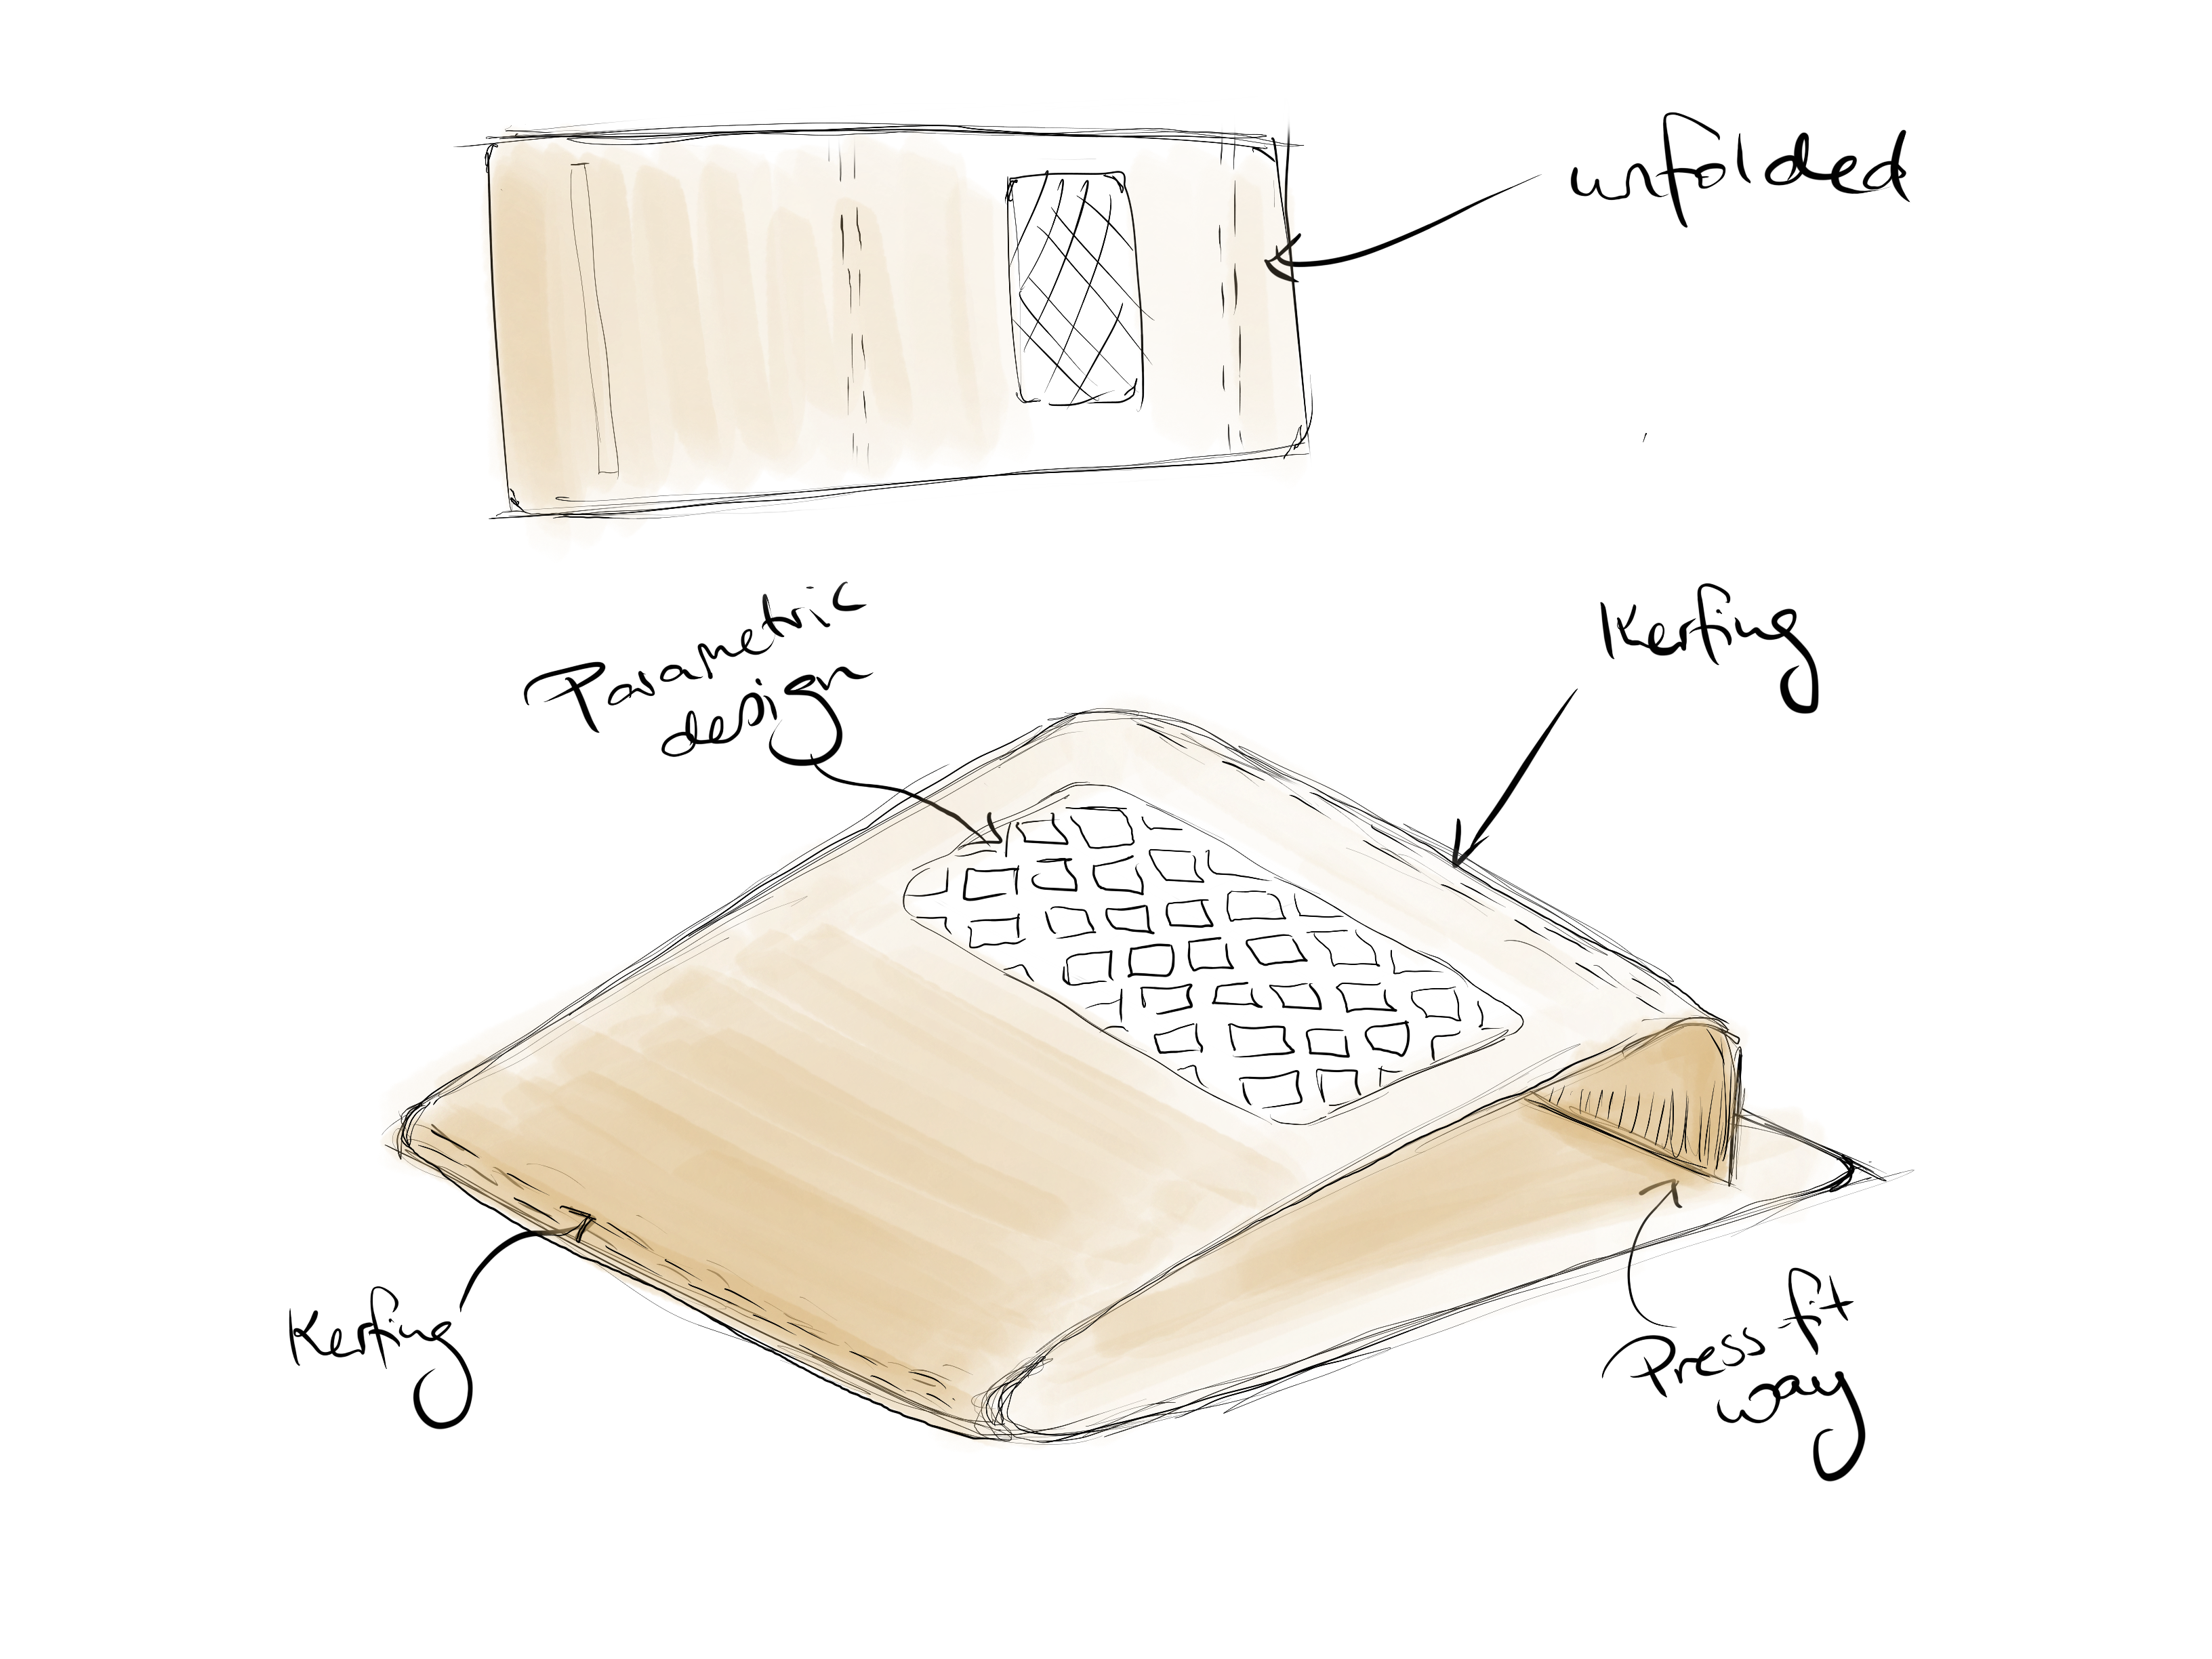 unfolded
Parametric
design
Kerfing
Kerfing
Press fit
way